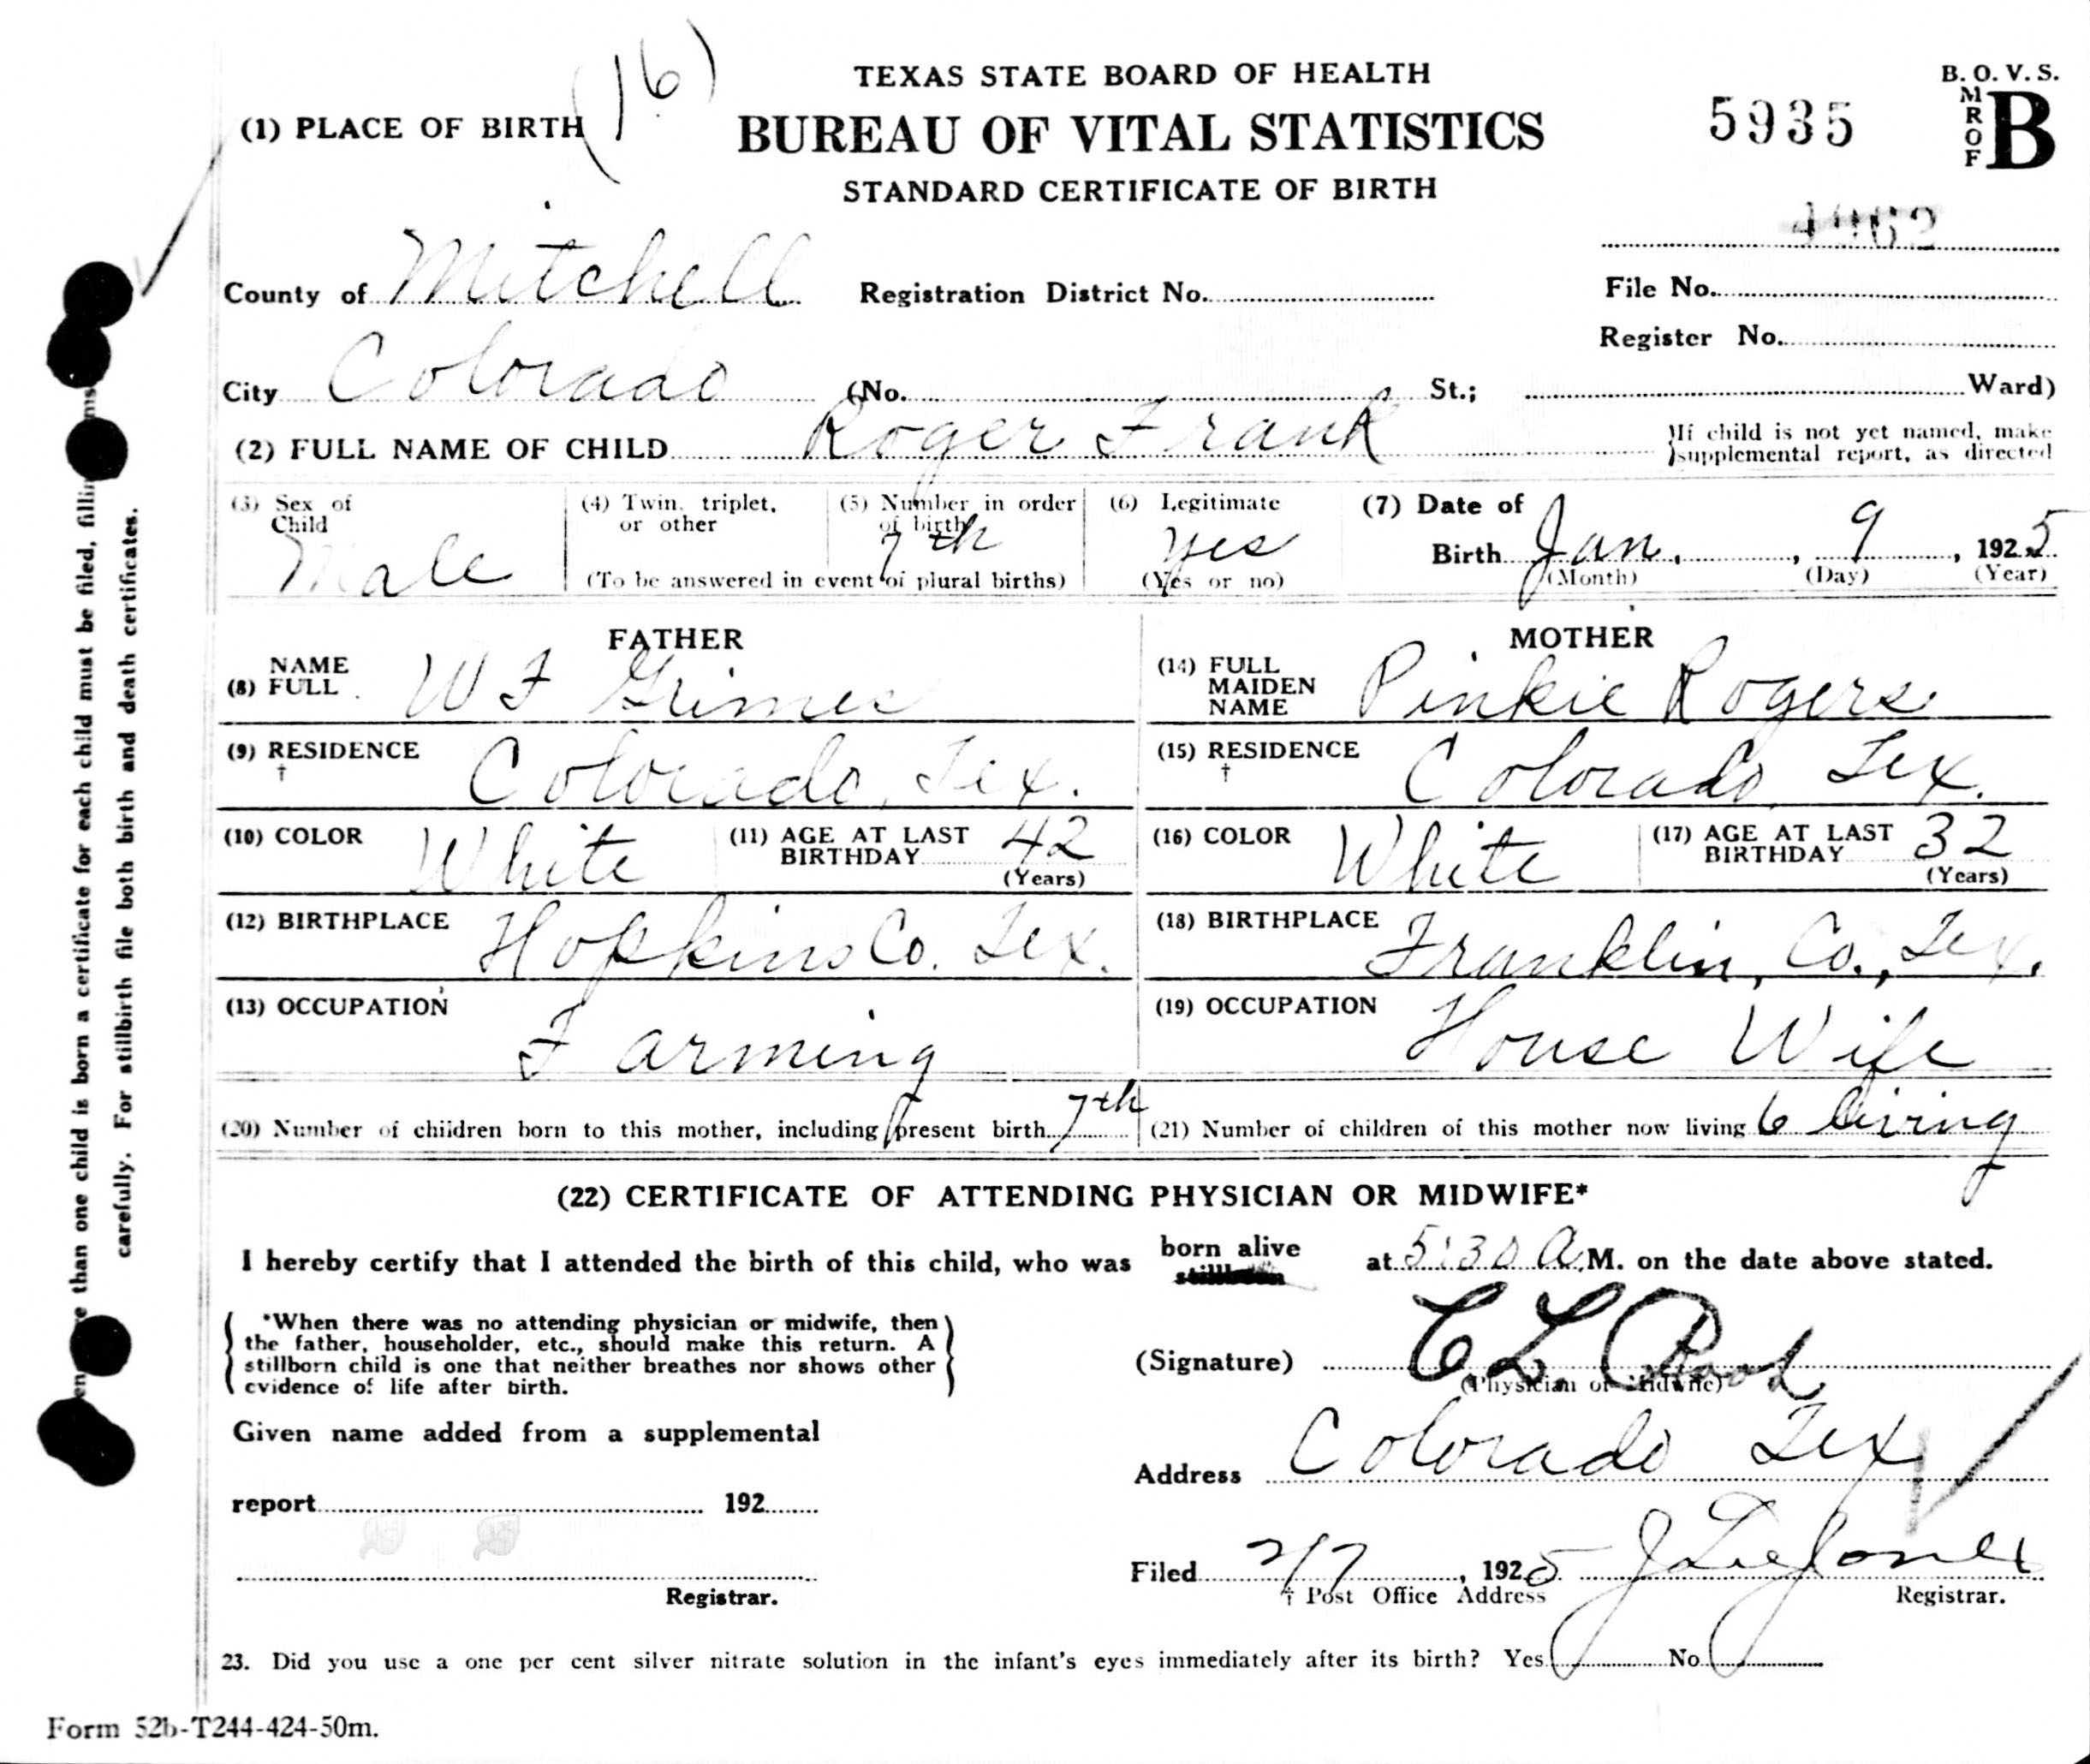 (16)
TEXAS STATE BOARD OF HEALTH
B. O. V. S.
(1) PLACE OF BIRTH
BUREAU OF VITAL STATISTICS
5935
FORM B
STANDARD CERTIFICATE OF BIRTH
County of Mitchell Registration District No. File No.
Register No.
City Colorado (No. St.; Ward)
(2) FULL NAME OF CHILD Roger Frank
If child is not yet named, make
supplemental report, as directed
(3) Sex of Child Male
(4) Twin, triplet, or other
(5) Number in order of birth 7th
(To be answered in event of plural births)
(6) Legitimate yes (Yes or no)
(7) Date of Birth Jan. , 9 , 1925
(Month) (Day) (Year)
FATHER
(8) NAME FULL W F Grimes
(9) RESIDENCE † Colorado, Tex.
(10) COLOR White
(11) AGE AT LAST BIRTHDAY 42 (Years)
(12) BIRTHPLACE Hopkins Co. Tex.
(13) OCCUPATION Farming
MOTHER
(14) FULL MAIDEN NAME Pinkie Rogers
(15) RESIDENCE † Colorado, Tex.
(16) COLOR White
(17) AGE AT LAST BIRTHDAY 32 (Years)
(18) BIRTHPLACE Franklin, Co., Tex.
(19) OCCUPATION House Wife
(20) Number of children born to this mother, including present birth 7th
(21) Number of children of this mother now living 6 living
(22) CERTIFICATE OF ATTENDING PHYSICIAN OR MIDWIFE*
I hereby certify that I attended the birth of this child, who was born alive stillborn at 5:30 A.M. on the date above stated.
*When there was no attending physician or midwife, then
the father, householder, etc., should make this return. A
stillborn child is one that neither breathes nor shows other
evidence of life after birth.
(Signature) C L Root
(Physician or Midwife)
Given name added from a supplemental
Address Colorado Tex
report 192
Filed 2/7 , 1925 J Lee Jones
Registrar.
† Post Office Address
Registrar.
23. Did you use a one per cent silver nitrate solution in the infant's eyes immediately after its birth? Yes No
Form 52b-T244-424-50m.
than one child is born a certificate for each child must be filed, filling
carefully. For stillbirth file both birth and death certificates.